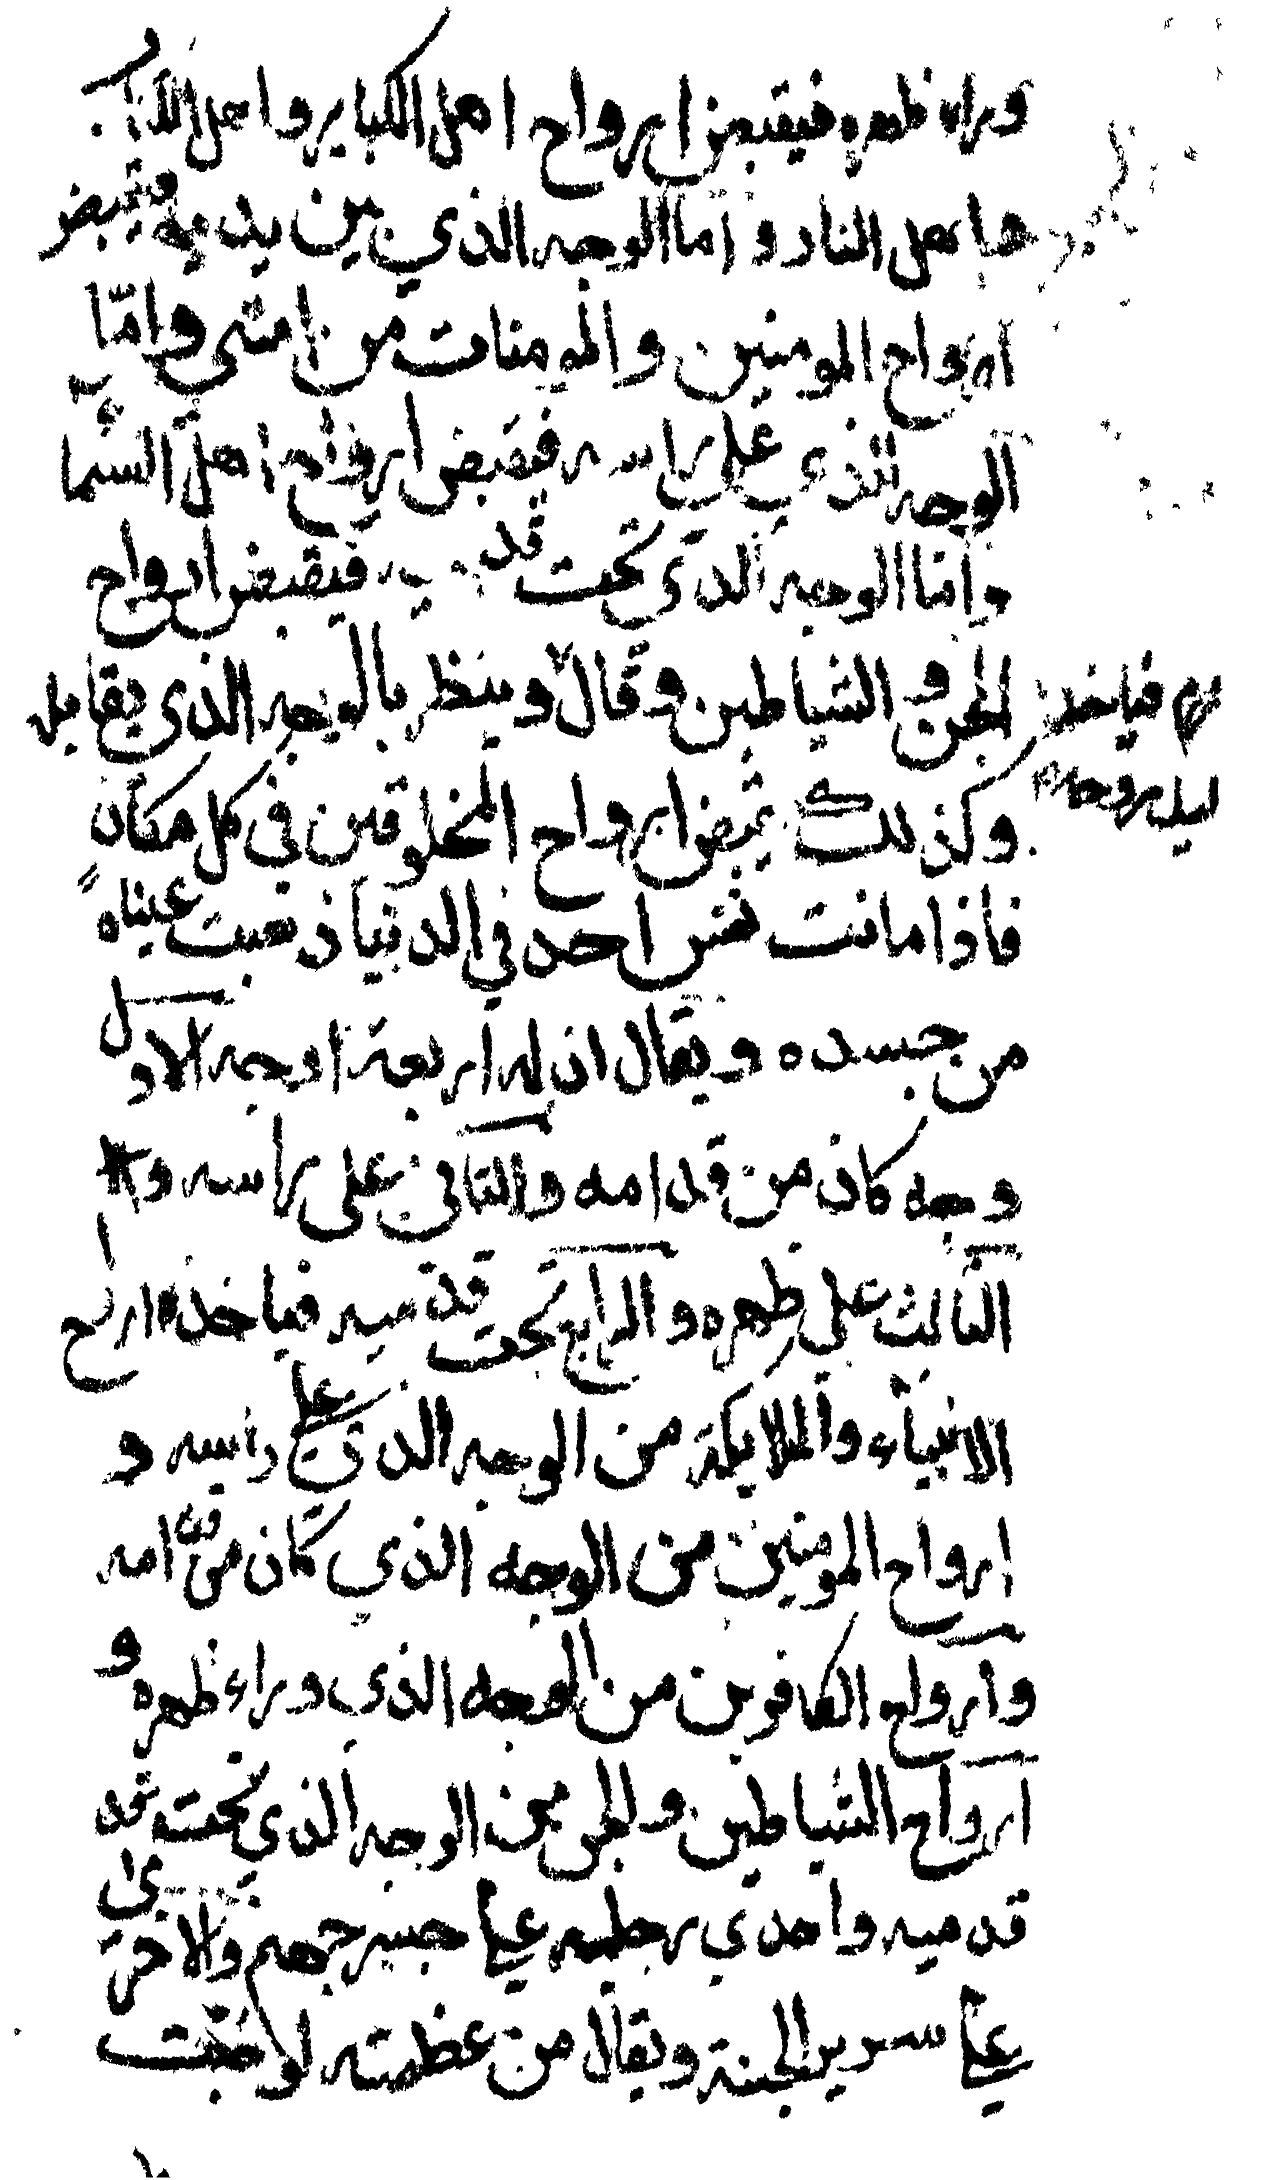 وراء ظهره فيقبض ارواح اهل الكباير واهل
اهل النار واما الوجه الذي بين يديه فيقبض
ارواح المومنين والمومنات من امتي واما
الوجه الذي على راسه فيقبض ارواح اهل السما
واما الوجه الذي تحت فيقبض ارواح
الجن والشياطين وقال وينظر بالوجه الذي يقابل
فياخذ
روحه
وكذلك يقبض ارواح المخلوقين في كل مكان
فاذا ماتت نفس احد في الدنيا ذهبت عيناه
من جسده ويقال ان له اربعة اوجه الاول
وجه كان من قدامه والثاني على راسه و
الثالث على ظهره والرابع تحت قدميه فياخذ ارواح
الانبياء والملايكة من الوجه الذي على راسه و
ارواح المومنين من الوجه الذي كان من قدامه
وارواح الكافرين من الوجه الذي وراء ظهره و
ارواح الشياطين والجن من الوجه الذي تحته تحت
قدميه واحدي رجليه على جسر جهنم والاخرى
على سرير الجنة ويقال من عظمته لو صبت